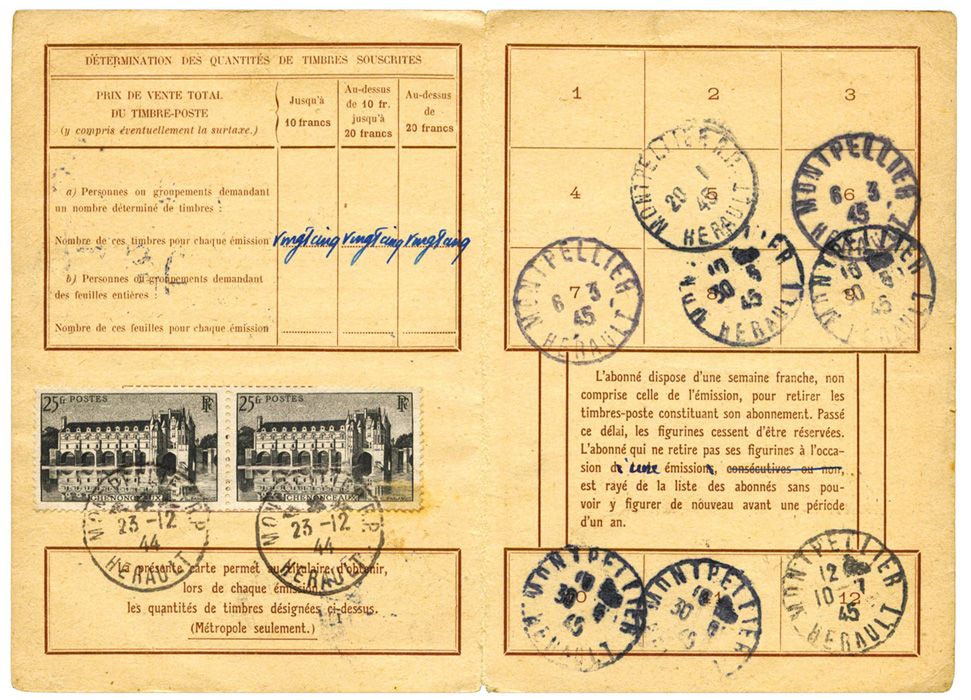 DÉTERMINATION DES QUANTITÉS DE TIMBRES SOUSCRITES
PRIX DE VENTE TOTAL
DU TIMBRE-POSTE
(y compris éventuellement la surtaxe.)
Jusqu'à
10 francs
Au-dessus
de 10 fr.
jusqu'à
20 francs
Au-dessus
de
20 francs
a) Personnes ou groupements demandant
un nombre déterminé de timbres :
Nombre de ces timbres pour chaque émission vingtcinq vingtcinq vingtcinq
b) Personnes ou groupements demandant
des feuilles entières :
Nombre de ces feuilles pour chaque émission
25F POSTES RF
CHENONCEAUX
25F POSTES RF
CHENONCEAUX
MONTPELLIER R.P.
23-12
44
HERAULT
MONTPELLIER R.P.
23-12
44
HERAULT
La présente carte permet au titulaire d'obtenir,
lors de chaque émission,
les quantités de timbres désignées ci-dessus.
(Métropole seulement.)
1 2 3
4 5 6
7 8 9
MONTPELLIER R.P.
20 1
45
HERAULT
MONTPELLIER
6 3
45
HERAULT
MONTPELLIER
6 3
45
HERAULT
30
45
HERAULT
MONTPELLIER
30
45
HERAULT
L'abonné dispose d'une semaine franche, non
comprise celle de l'émission, pour retirer les
timbres-poste constituant son abonnement. Passé
ce délai, les figurines cessent d'être réservées.
L'abonné qui ne retire pas ses figurines à l'occa-
sion d'une émission, consécutives ou non,
est rayé de la liste des abonnés sans pou-
voir y figurer de nouveau avant une période
d'un an.
10 11 12
MONTPELLIER
30
45
HERAULT
MONTPELLIER
30
45
HERAULT
MONTPELLIER
12
10
45
HERAULT